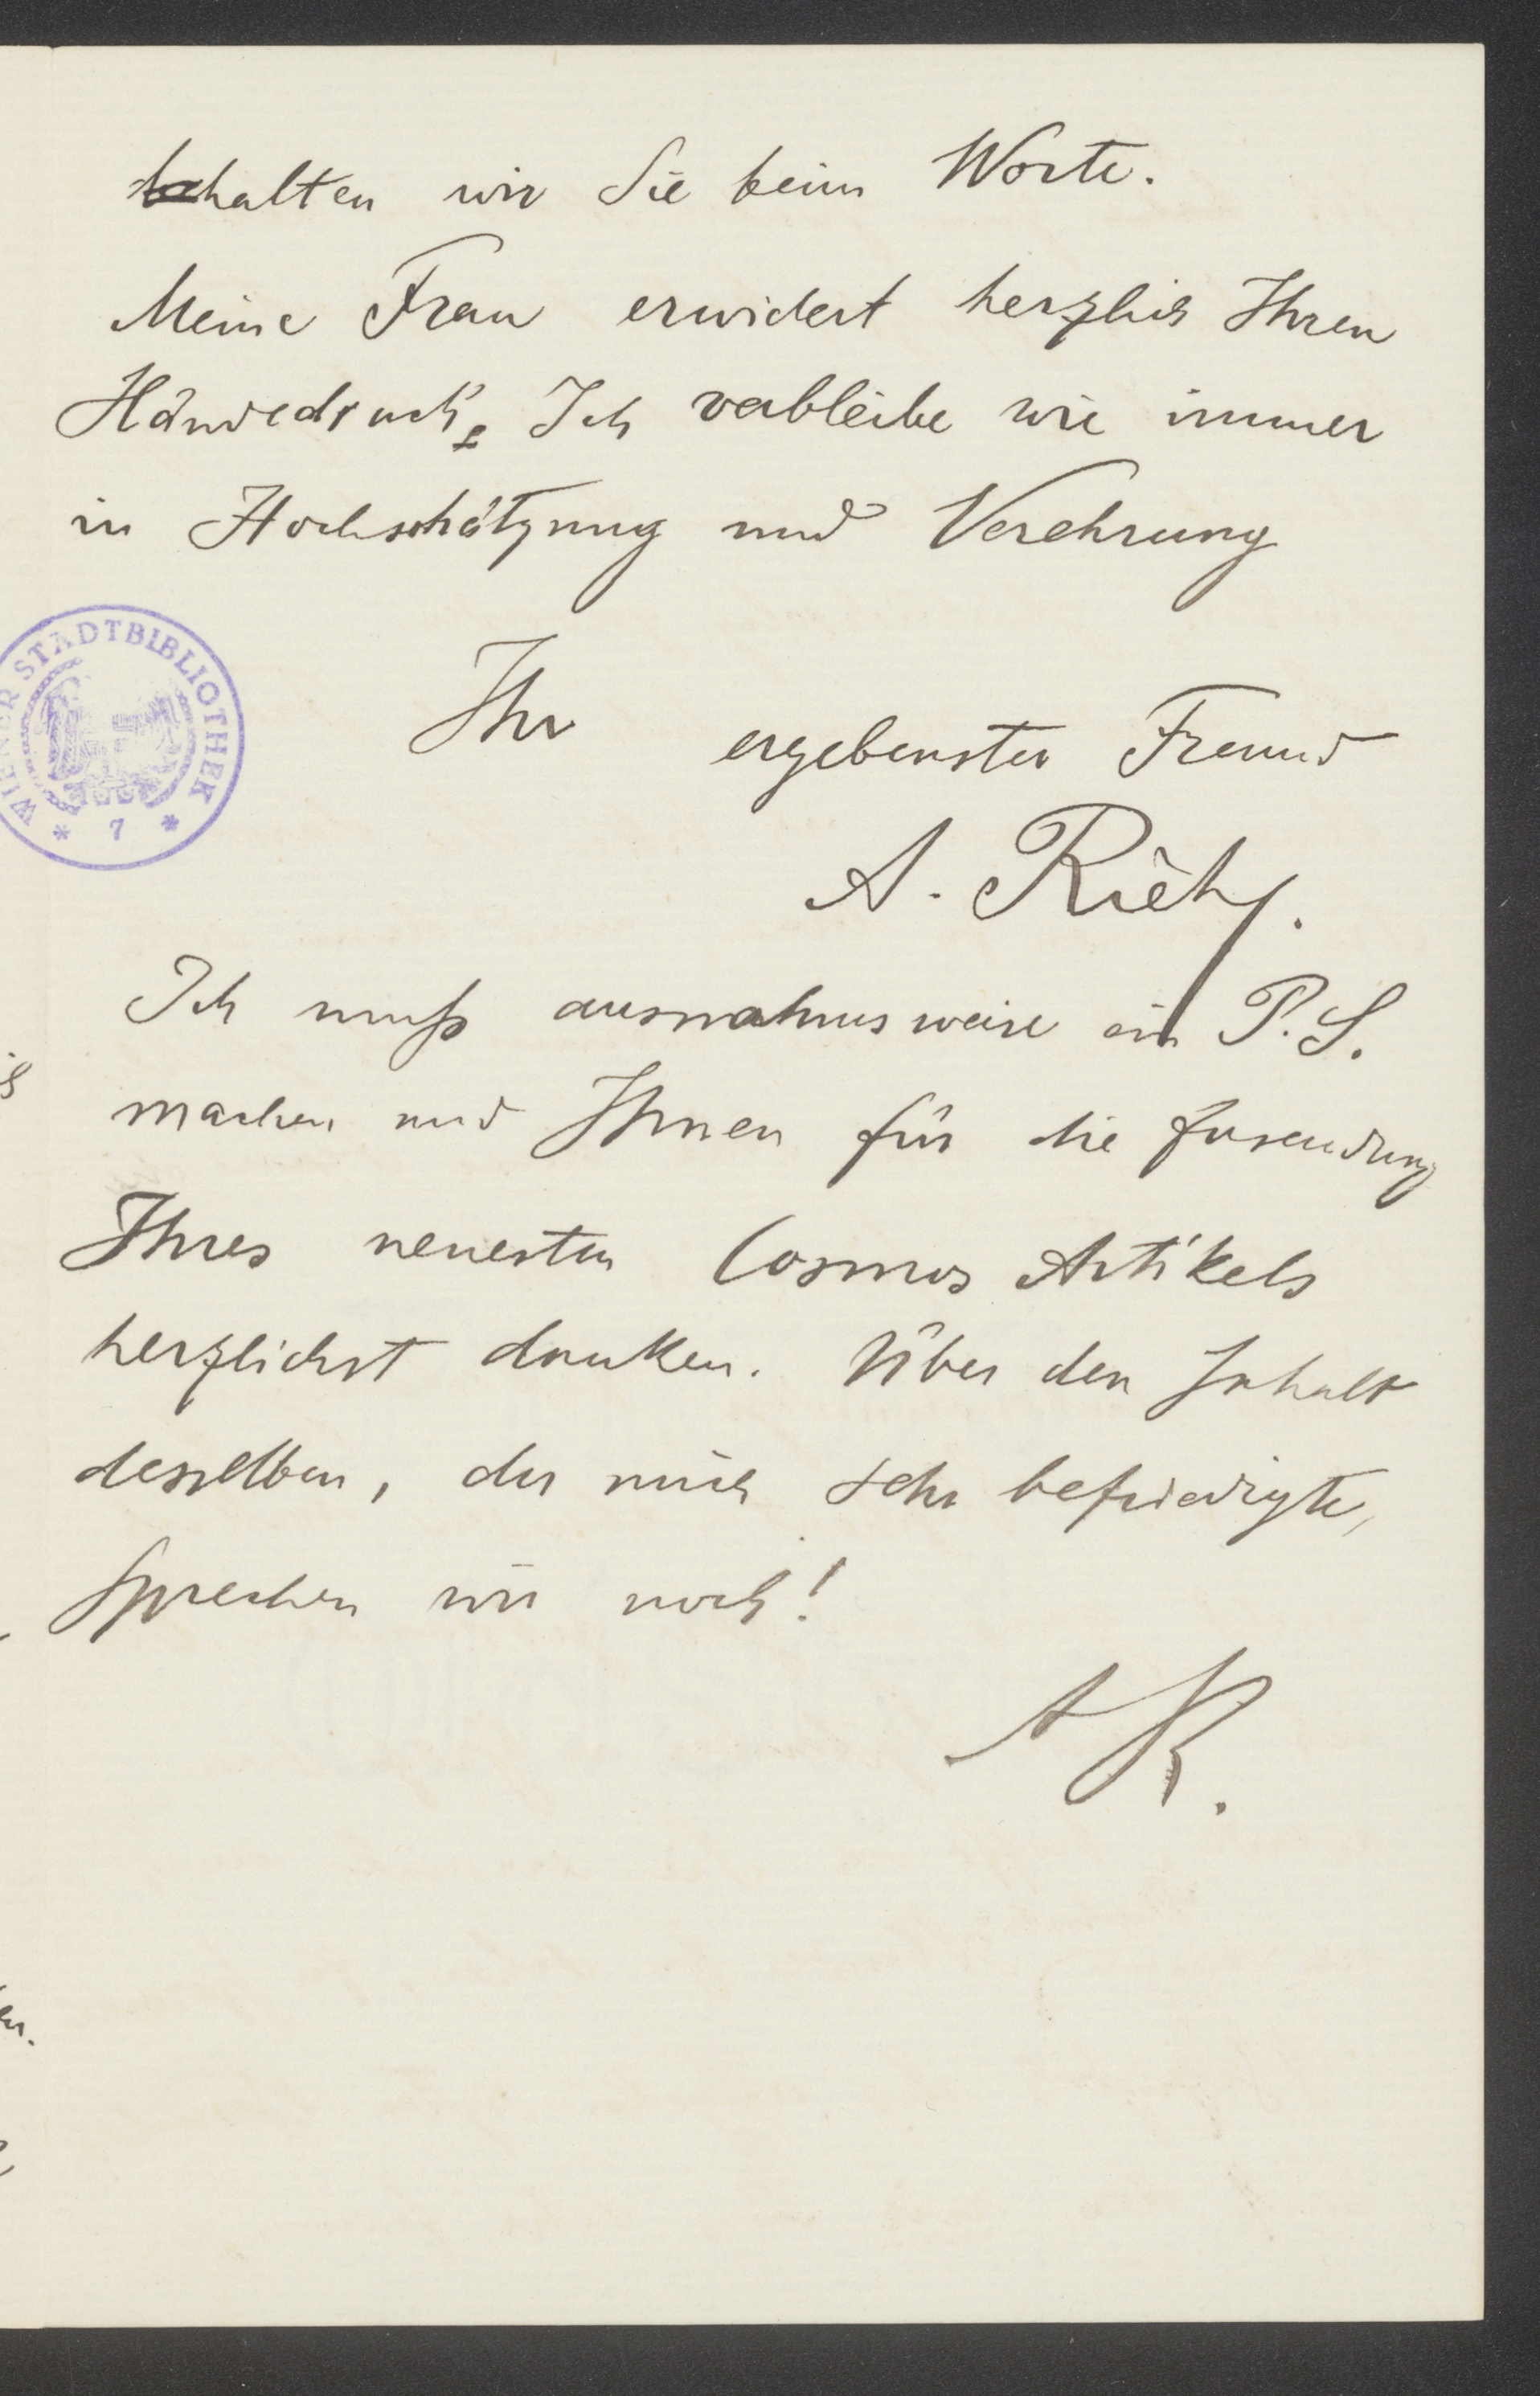 halten wir Sie beim Worte.
Meine Frau erwidert herzlich Ihren
Händedruck. Ich verbleibe wie immer
in Hochschätzung und Verehrung
WIENER STADTBIBLIOTHEK
* 7 *
Ihr ergebenster Freund
A. Riehl.
Ich muß ausnahmsweise ein P.S.
machen und Ihnen für die Zusendung
Ihres neuesten Cosmos Artikels
herzlichst danken. Über den Inhalt
desselben, der mich sehr befriedigte,
sprechen wir noch!
AR.